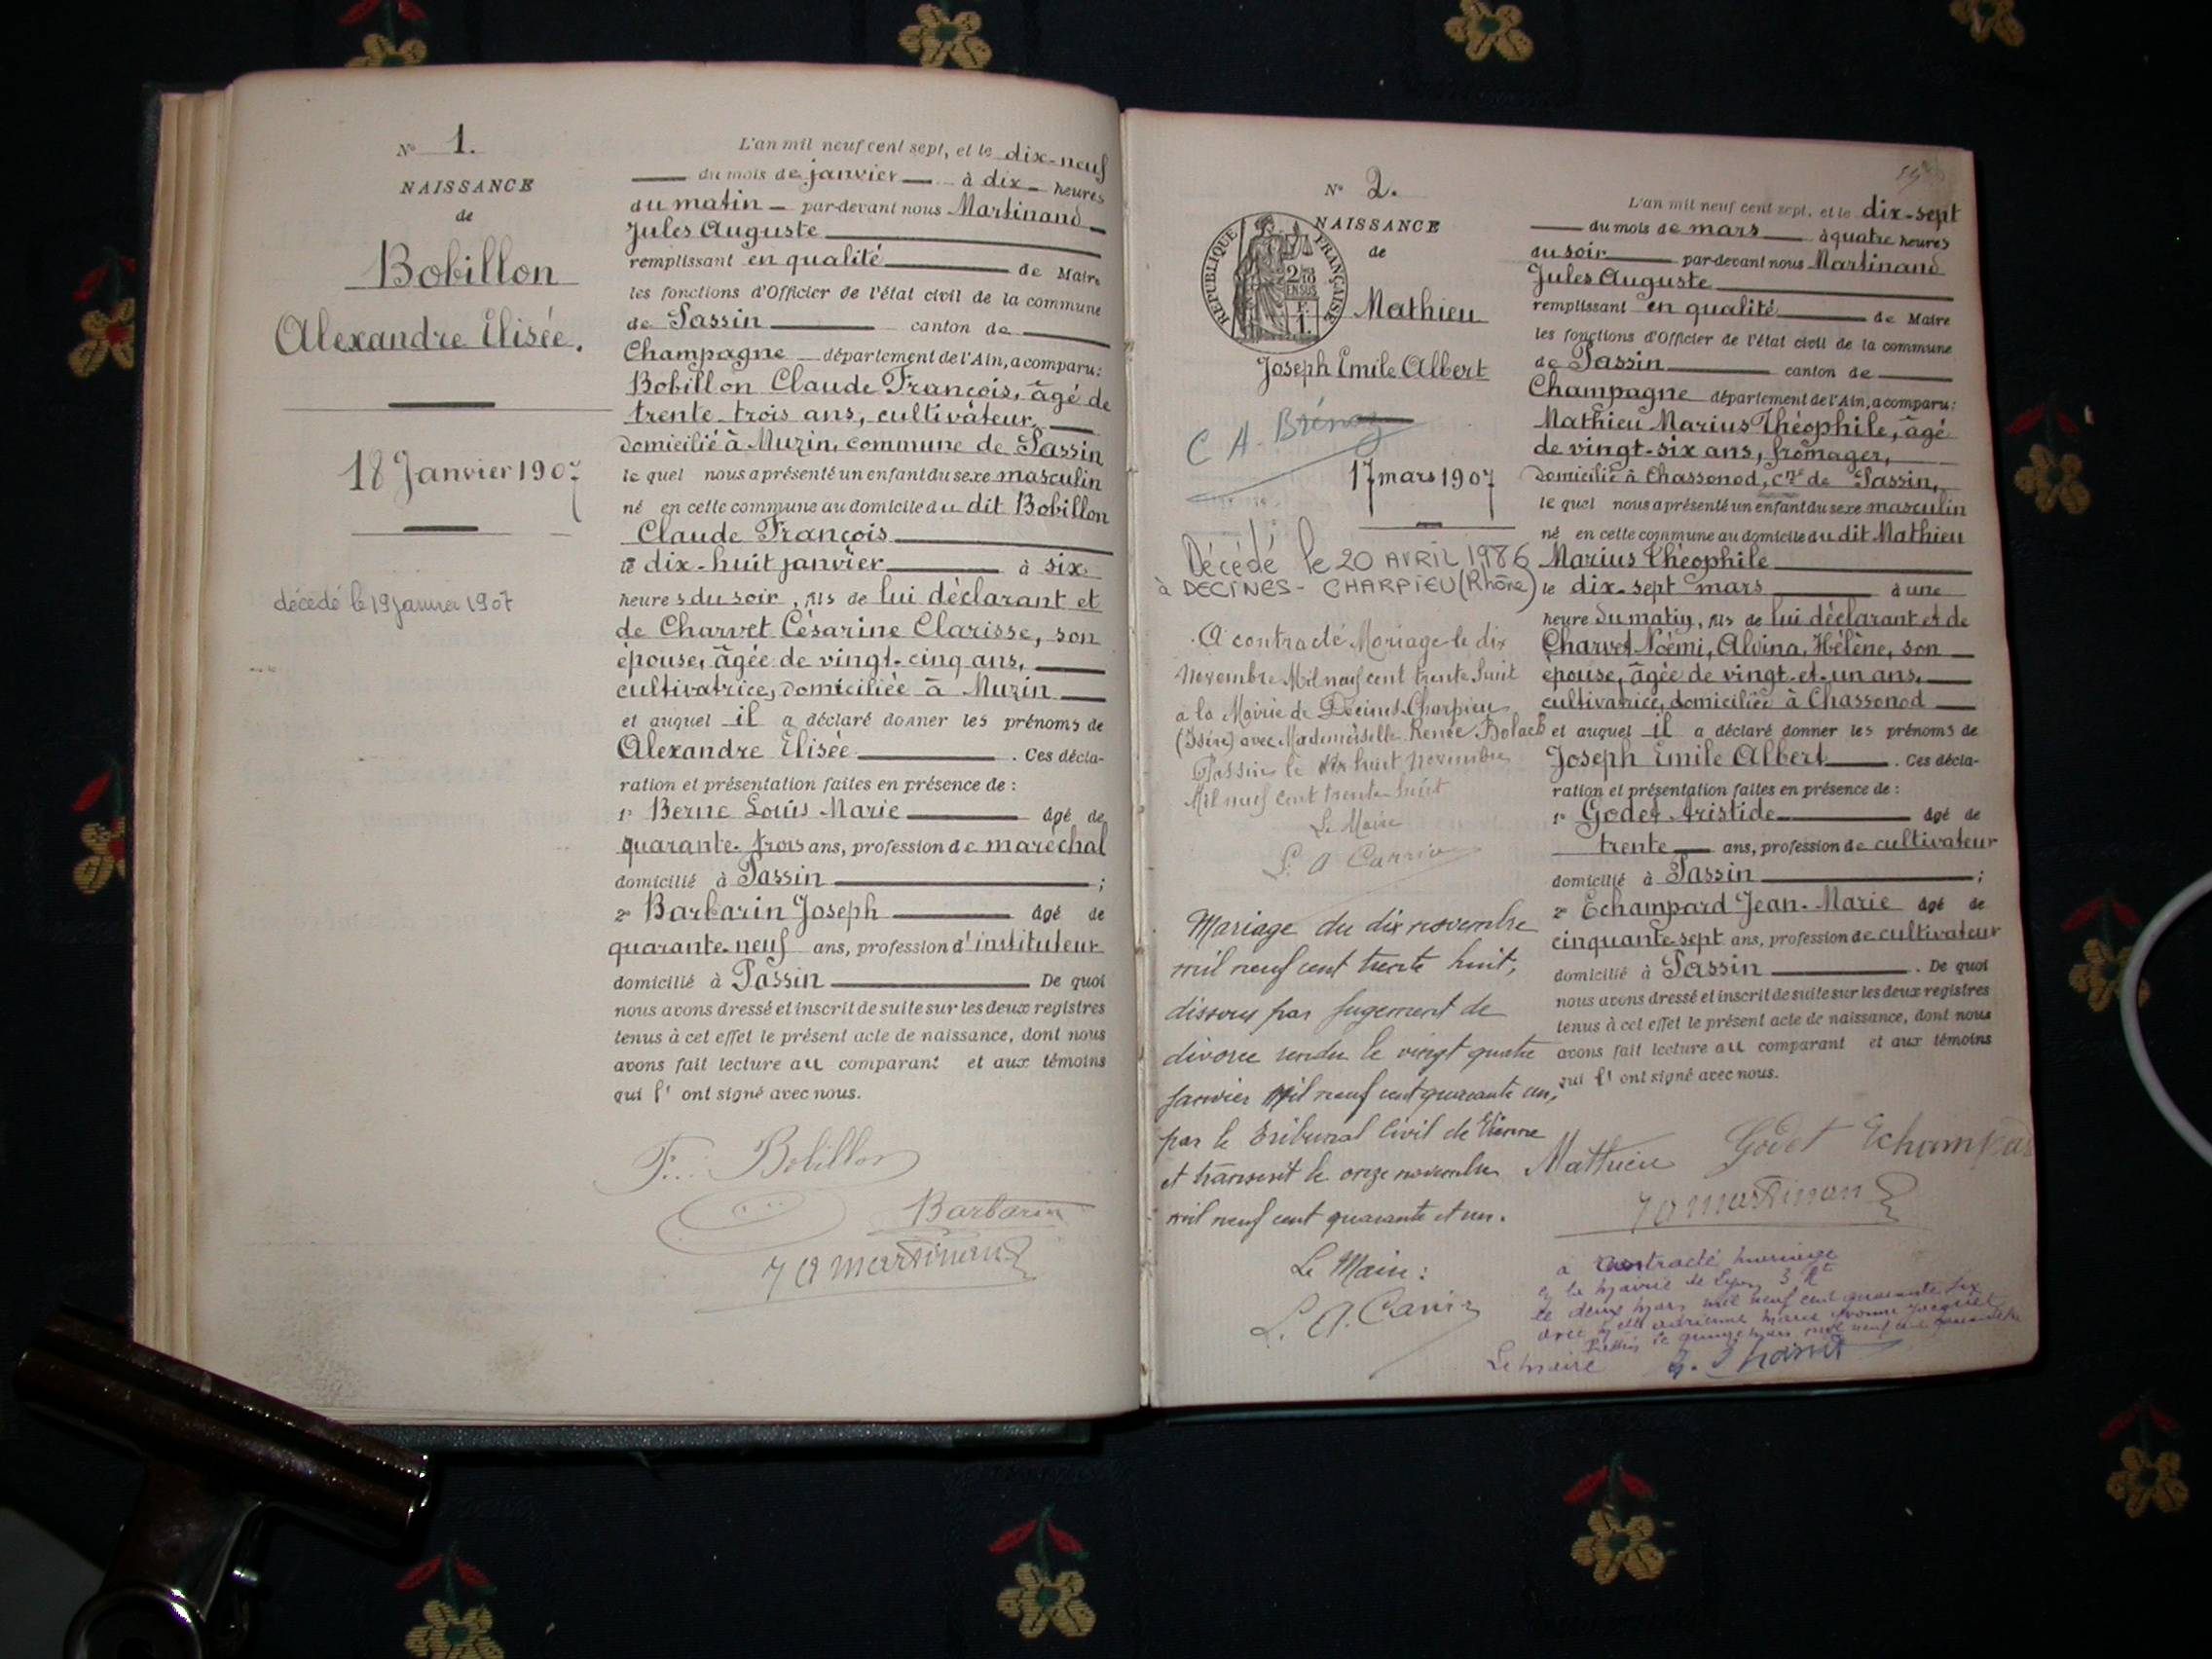 N° 1.
NAISSANCE
de
Bobillon
Alexandre Elisée.
18 Janvier 1907
décédé le 19 janvier 1907
L'an mil neuf cent sept, et le dix-neuf
du mois de janvier à dix heures
du matin par-devant nous Martinand
Jules Auguste
remplissant en qualité de Maire
les fonctions d'Officier de l'état civil de la commune
de Passin canton de
Champagne département de l'Ain, a comparu:
Bobillon Claude François, âgé de
trente-trois ans, cultivateur,
domicilié à Muzin, commune de Passin
le quel nous a présenté un enfant du sexe masculin
né en cette commune au domicile du dit Bobillon
Claude François
le dix-huit janvier à six
heures du soir, fils de lui déclarant et
de Charvet Césarine Clarisse, son
épouse, âgée de vingt-cinq ans,
cultivatrice, domiciliée à Muzin
et auquel il a déclaré donner les prénoms de
Alexandre Elisée. Ces décla-
ration et présentation faites en présence de :
1° Berne Louis Marie âgé de
quarante-trois ans, profession de maréchal
domicilié à Passin ;
2° Barbarin Joseph âgé de
quarante-neuf ans, profession d'instituteur
domicilié à Passin De quoi
nous avons dressé et inscrit de suite sur les deux registres
tenus à cet effet le présent acte de naissance, dont nous
avons fait lecture au comparant et aux témoins
qui l' ont signé avec nous.
F. Bobillon
Barbarin
J A Martinand
N° 2.
NAISSANCE
de
RÉPUBLIQUE FRANÇAISE
Mathieu
Joseph Emile Albert
C A. Brénaz
17 mars 1907
Décédé le 20 AVRIL 1986
à DECINES - CHARPIEU (Rhône)
A contracté Mariage le dix
Novembre Mil neuf cent trente huit
a la Mairie de Decines-Charpieu
(Isère) avec Mademoiselle Renée
Passin le dix huit novembre
Mil neuf cent trente-huit
Le Maire
Mariage du dix novembre
mil neuf cent trente huit,
dissous par jugement de
divorce rendu le vingt quatre
janvier mil neuf cent quarante un,
par le Tribunal Civil de Vienne
et transcrit le onze novembre
mil neuf cent quarante et un.
Le Maire :
L'an mil neuf cent sept, et le dix-sept
du mois de mars à quatre heures
du soir par-devant nous Martinand
Jules Auguste
remplissant en qualité de Maire
les fonctions d'Officier de l'état civil de la commune
de Passin canton de
Champagne département de l'Ain, a comparu:
Mathieu Marius Théophile, âgé
de vingt-six ans, fromager,
domicilié à Chassonod, cne de Passin,
le quel nous a présenté un enfant du sexe masculin
né en cette commune au domicile du dit Mathieu
Marius Théophile
le dix-sept mars à une
heure du matin, fils de lui déclarant et de
Charvet Noémi, Alvina, Hélène, son
épouse, âgée de vingt-et-un ans,
cultivatrice, domiciliée à Chassonod
et auquel il a déclaré donner les prénoms de
Joseph Emile Albert. Ces décla-
ration et présentation faites en présence de :
1° Godet Aristide âgé de
trente ans, profession de cultivateur
domicilié à Passin ;
2° Echampard Jean-Marie âgé de
cinquante-sept ans, profession de cultivateur
domicilié à Passin. De quoi
nous avons dressé et inscrit de suite sur les deux registres
tenus à cet effet le présent acte de naissance, dont nous
avons fait lecture au comparant et aux témoins
qui l' ont signé avec nous.
Mathieu Godet Echampard
J A Martinand
a contracté mariage
à la mairie de Lyon 3
le deux mars mil neuf cent quarante six
avec Marie Yvonne
Le maire